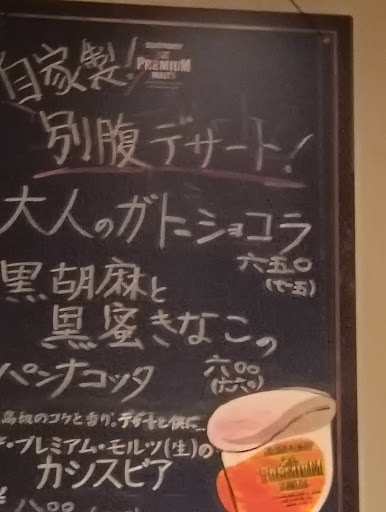 自家製!
SUNTORY
THE
PREMIUM
MALT'S
別腹デザート!
大人のガトーショコラ
六五〇
(七一五)
黒胡麻と
黒蜜きなこの
パンナコッタ
六〇〇
(六六〇)
高級のコクと香り。デザートと供に…
ザ・プレミアム・モルツ(生)の
カシスビア
¥八〇〇
THE
PREMIUM
MALT'S